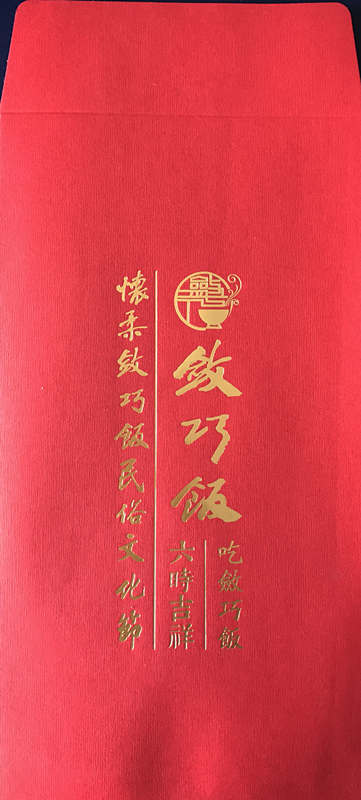 吃斂巧飯
六時吉祥
斂巧飯
懷柔斂巧飯民俗文化節